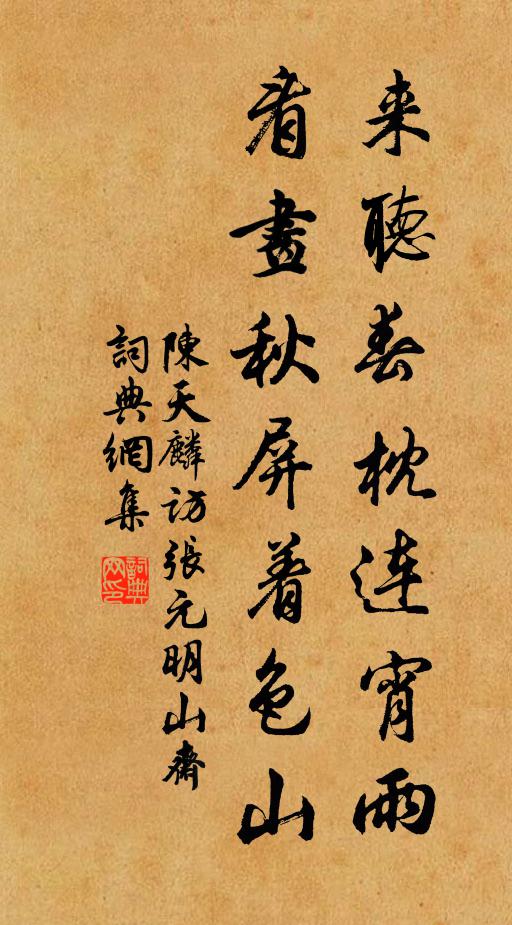 来聽春枕連宵雨
看畫秋屏着色山
陳天麟訪張元明山齋
詞典網集
詞典網印